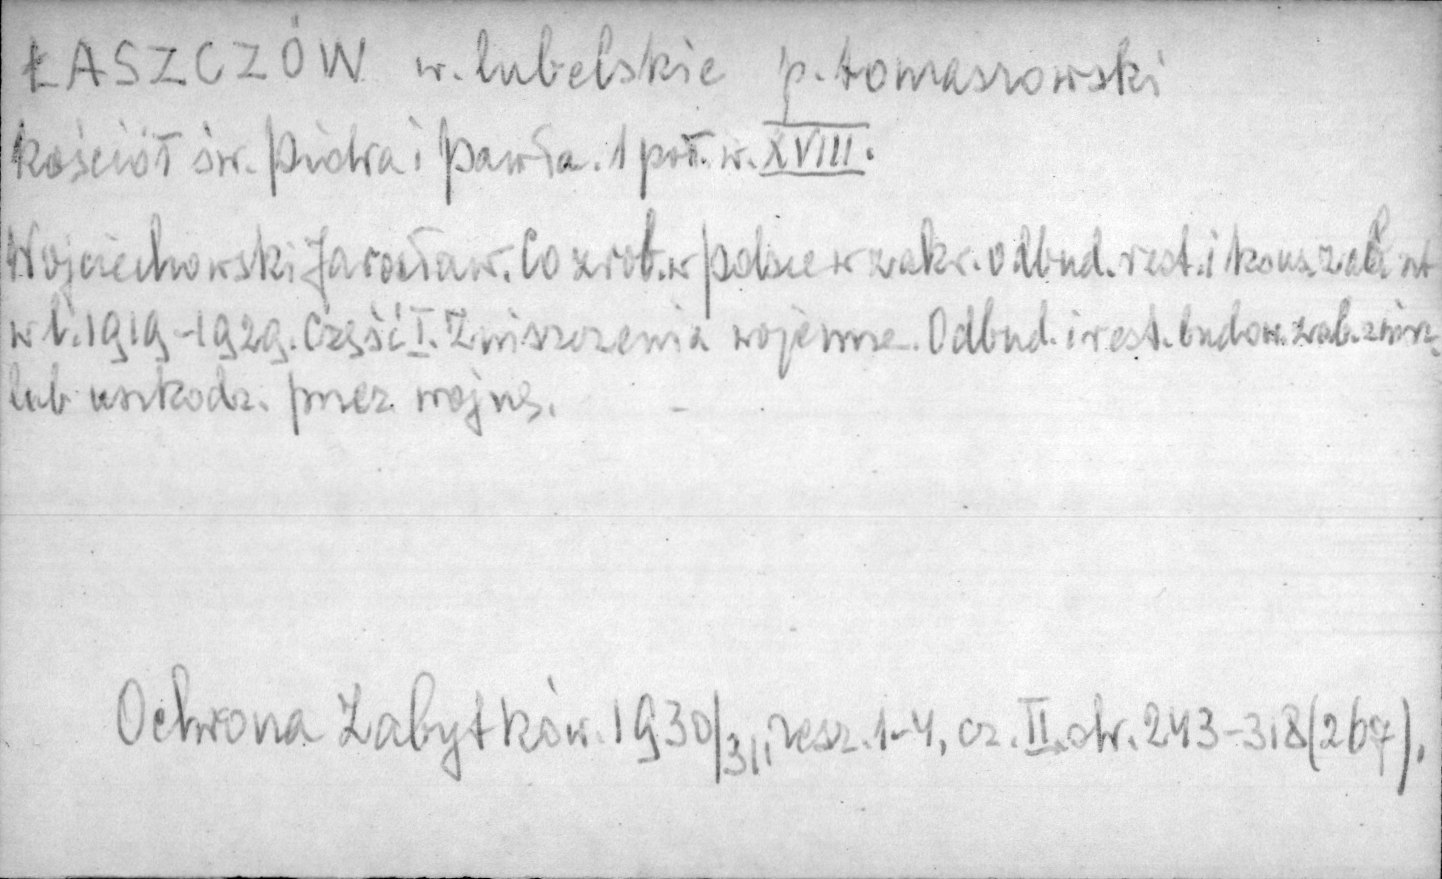 ŁASZCZÓW w. lubelskie p. tomaszowski
Kościół św. Piotra i Pawła. 1 poł. w. XVIII.
Wojciechowski Jarosław. Co zrob. w Polsce w zakr. odbud. rest. i kons. zab.
w l. 1919-1929. Część I. Zniszczenia wojenne. Odbud. i rest. budow. zab. zniszcz.
lub uszkodz. przez wojnę.
Ochrona Zabytków. 1930/31, zesz. 1-4, cz. II. str. 243-318 (267).